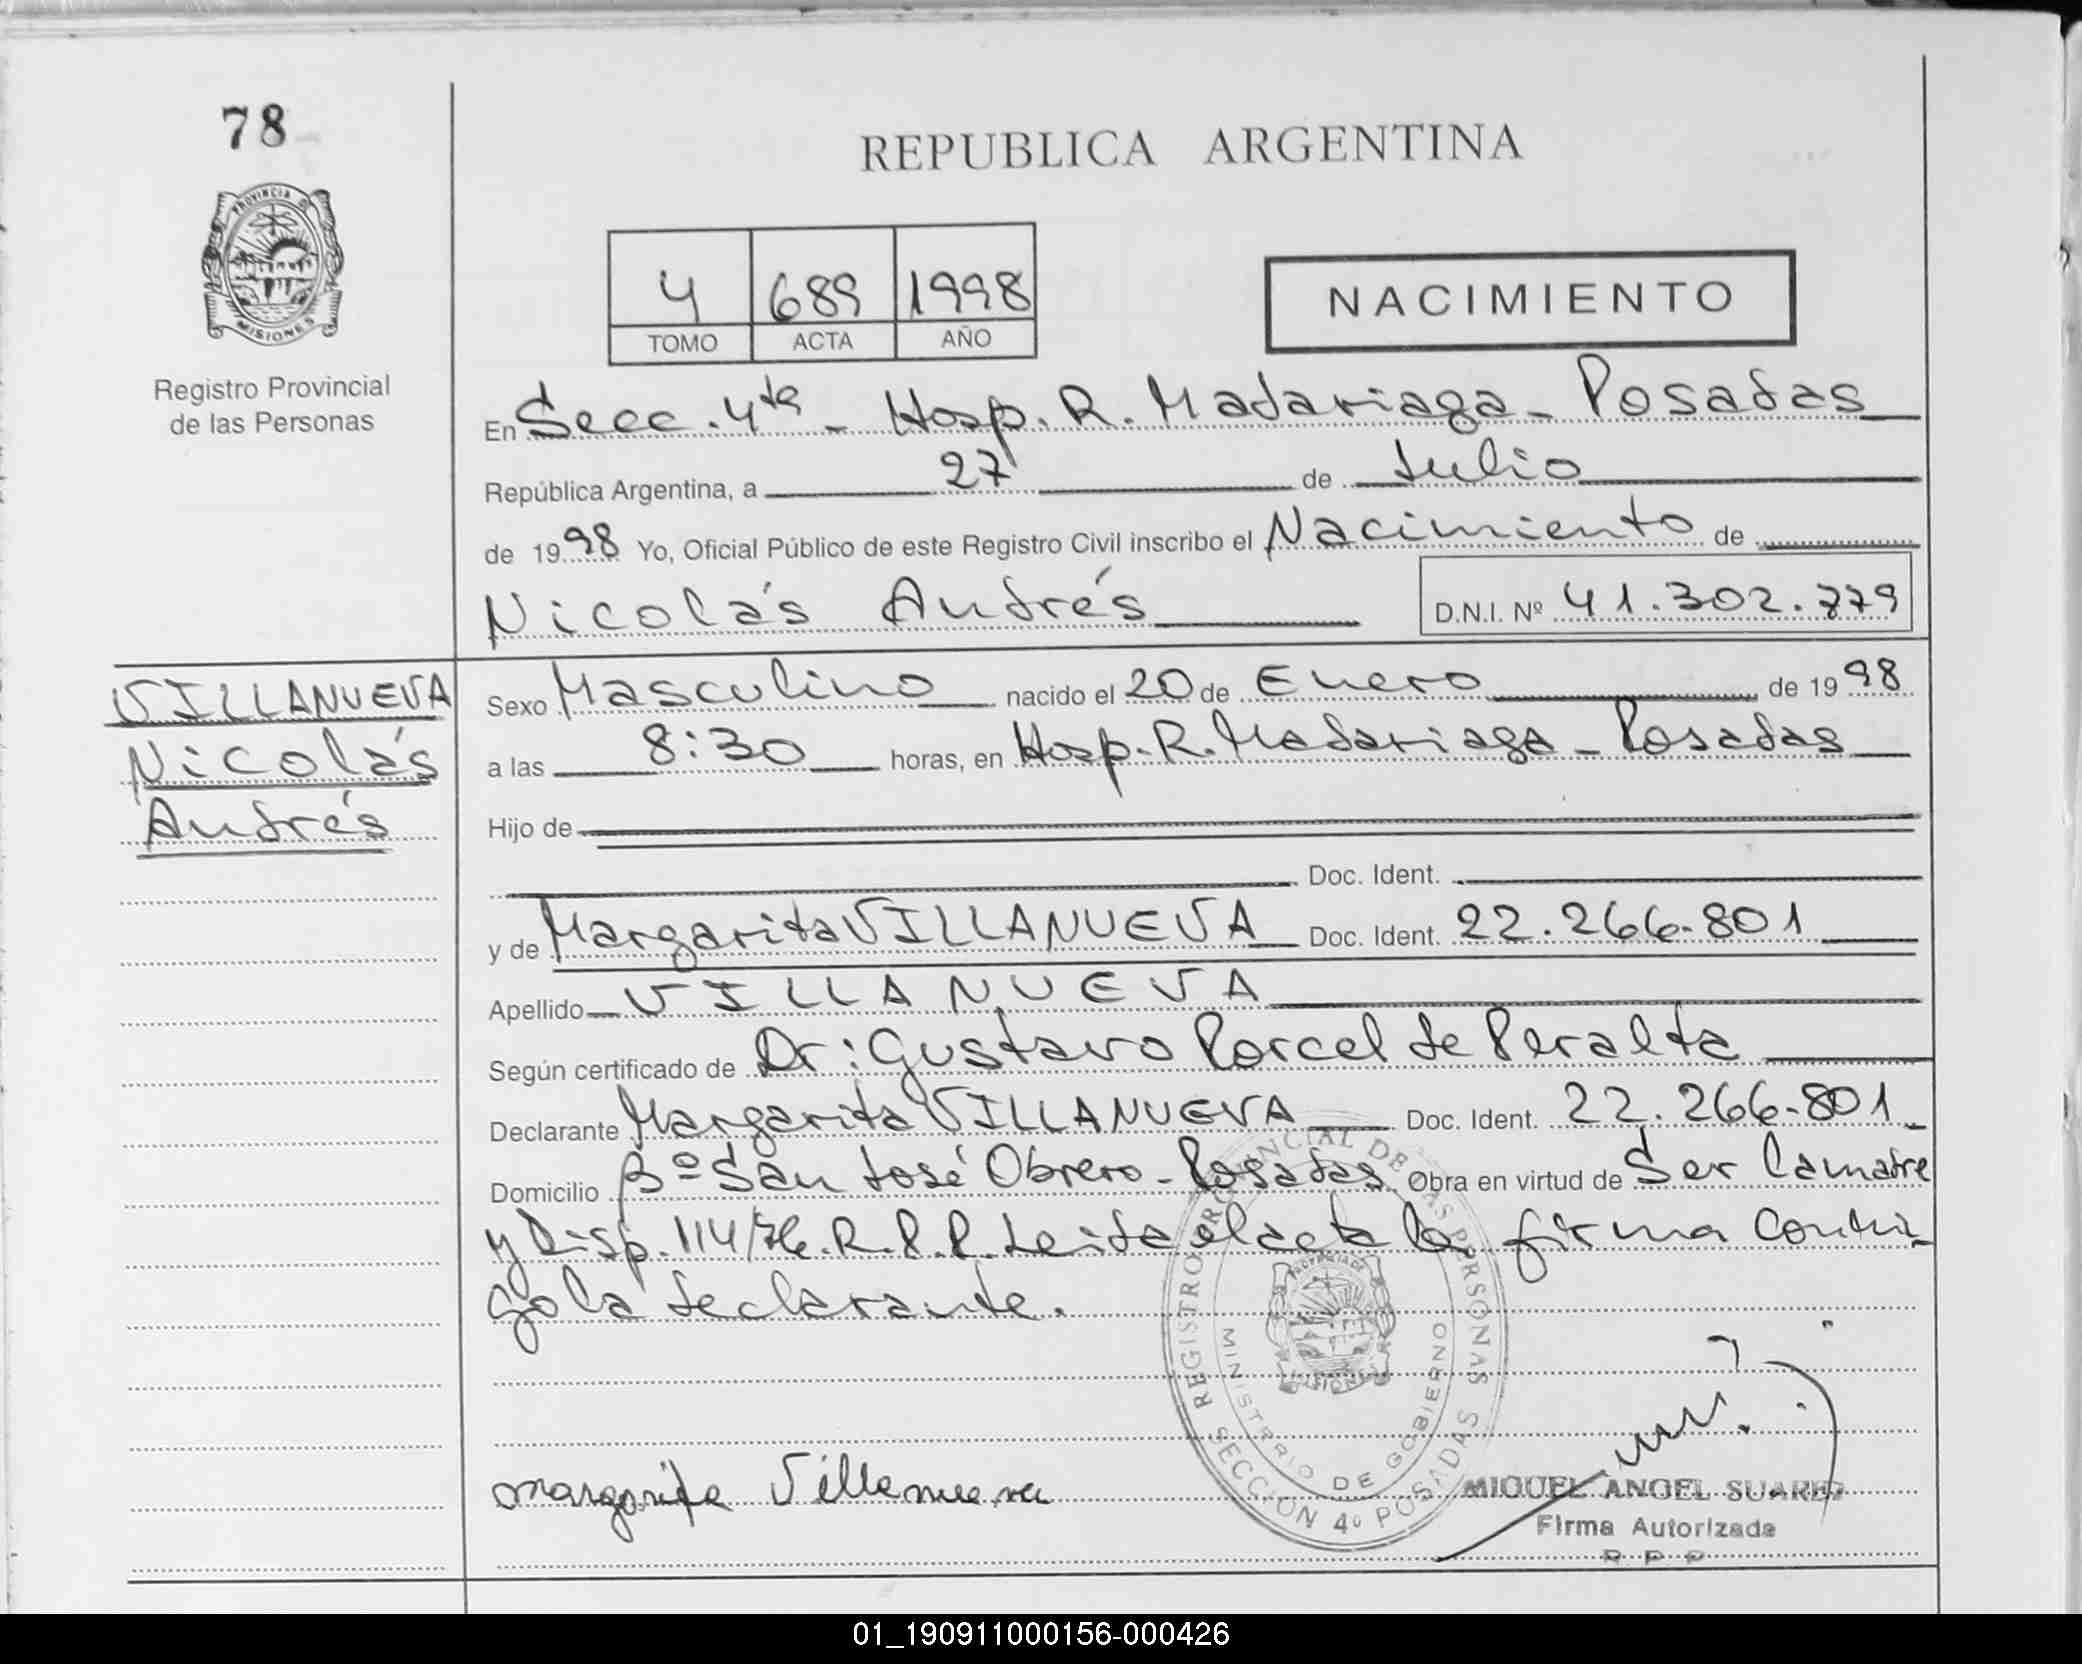 78
PROVINCIA D
MISIONES
Registro Provincial
de las Personas
REPUBLICA ARGENTINA
4 689 1998
TOMO ACTA AÑO
NACIMIENTO
En Secc. 4ta - Hosp. R. Madariaga - Posadas
República Argentina, a 27 de Julio
de 1998 Yo, Oficial Público de este Registro Civil inscribo el Nacimiento de
Nicolás Andrés
D.N.I. Nº 41.302.779
VILLANUEVA
Nicolás
Andrés
Sexo Masculino nacido el 20 de Enero de 1998
a las 8:30 horas, en Hosp. R. Madariaga - Posadas
Hijo de
Doc. Ident.
y de Margarita VILLANUEVA Doc. Ident. 22.266.801
Apellido VILLANUEVA
Según certificado de Dr: Gustavo Porcel de Peralta
Declarante Margarita VILLANUEVA Doc. Ident. 22.266.801
Domicilio Bº San José Obrero - Posadas Obra en virtud de Ser la madre
y Disp. 114/76. R.P.P. Leida el acta la firma conmi-
go la declarante.
REGISTRO PROVINCIAL DE LAS PERSONAS
MINISTERIO DE GOBIERNO
SECCION 4º POSADAS
Margarita Villanueva
MIGUEL ANGEL SUAREZ
Firma Autorizada
R P P
01_190911000156-000426